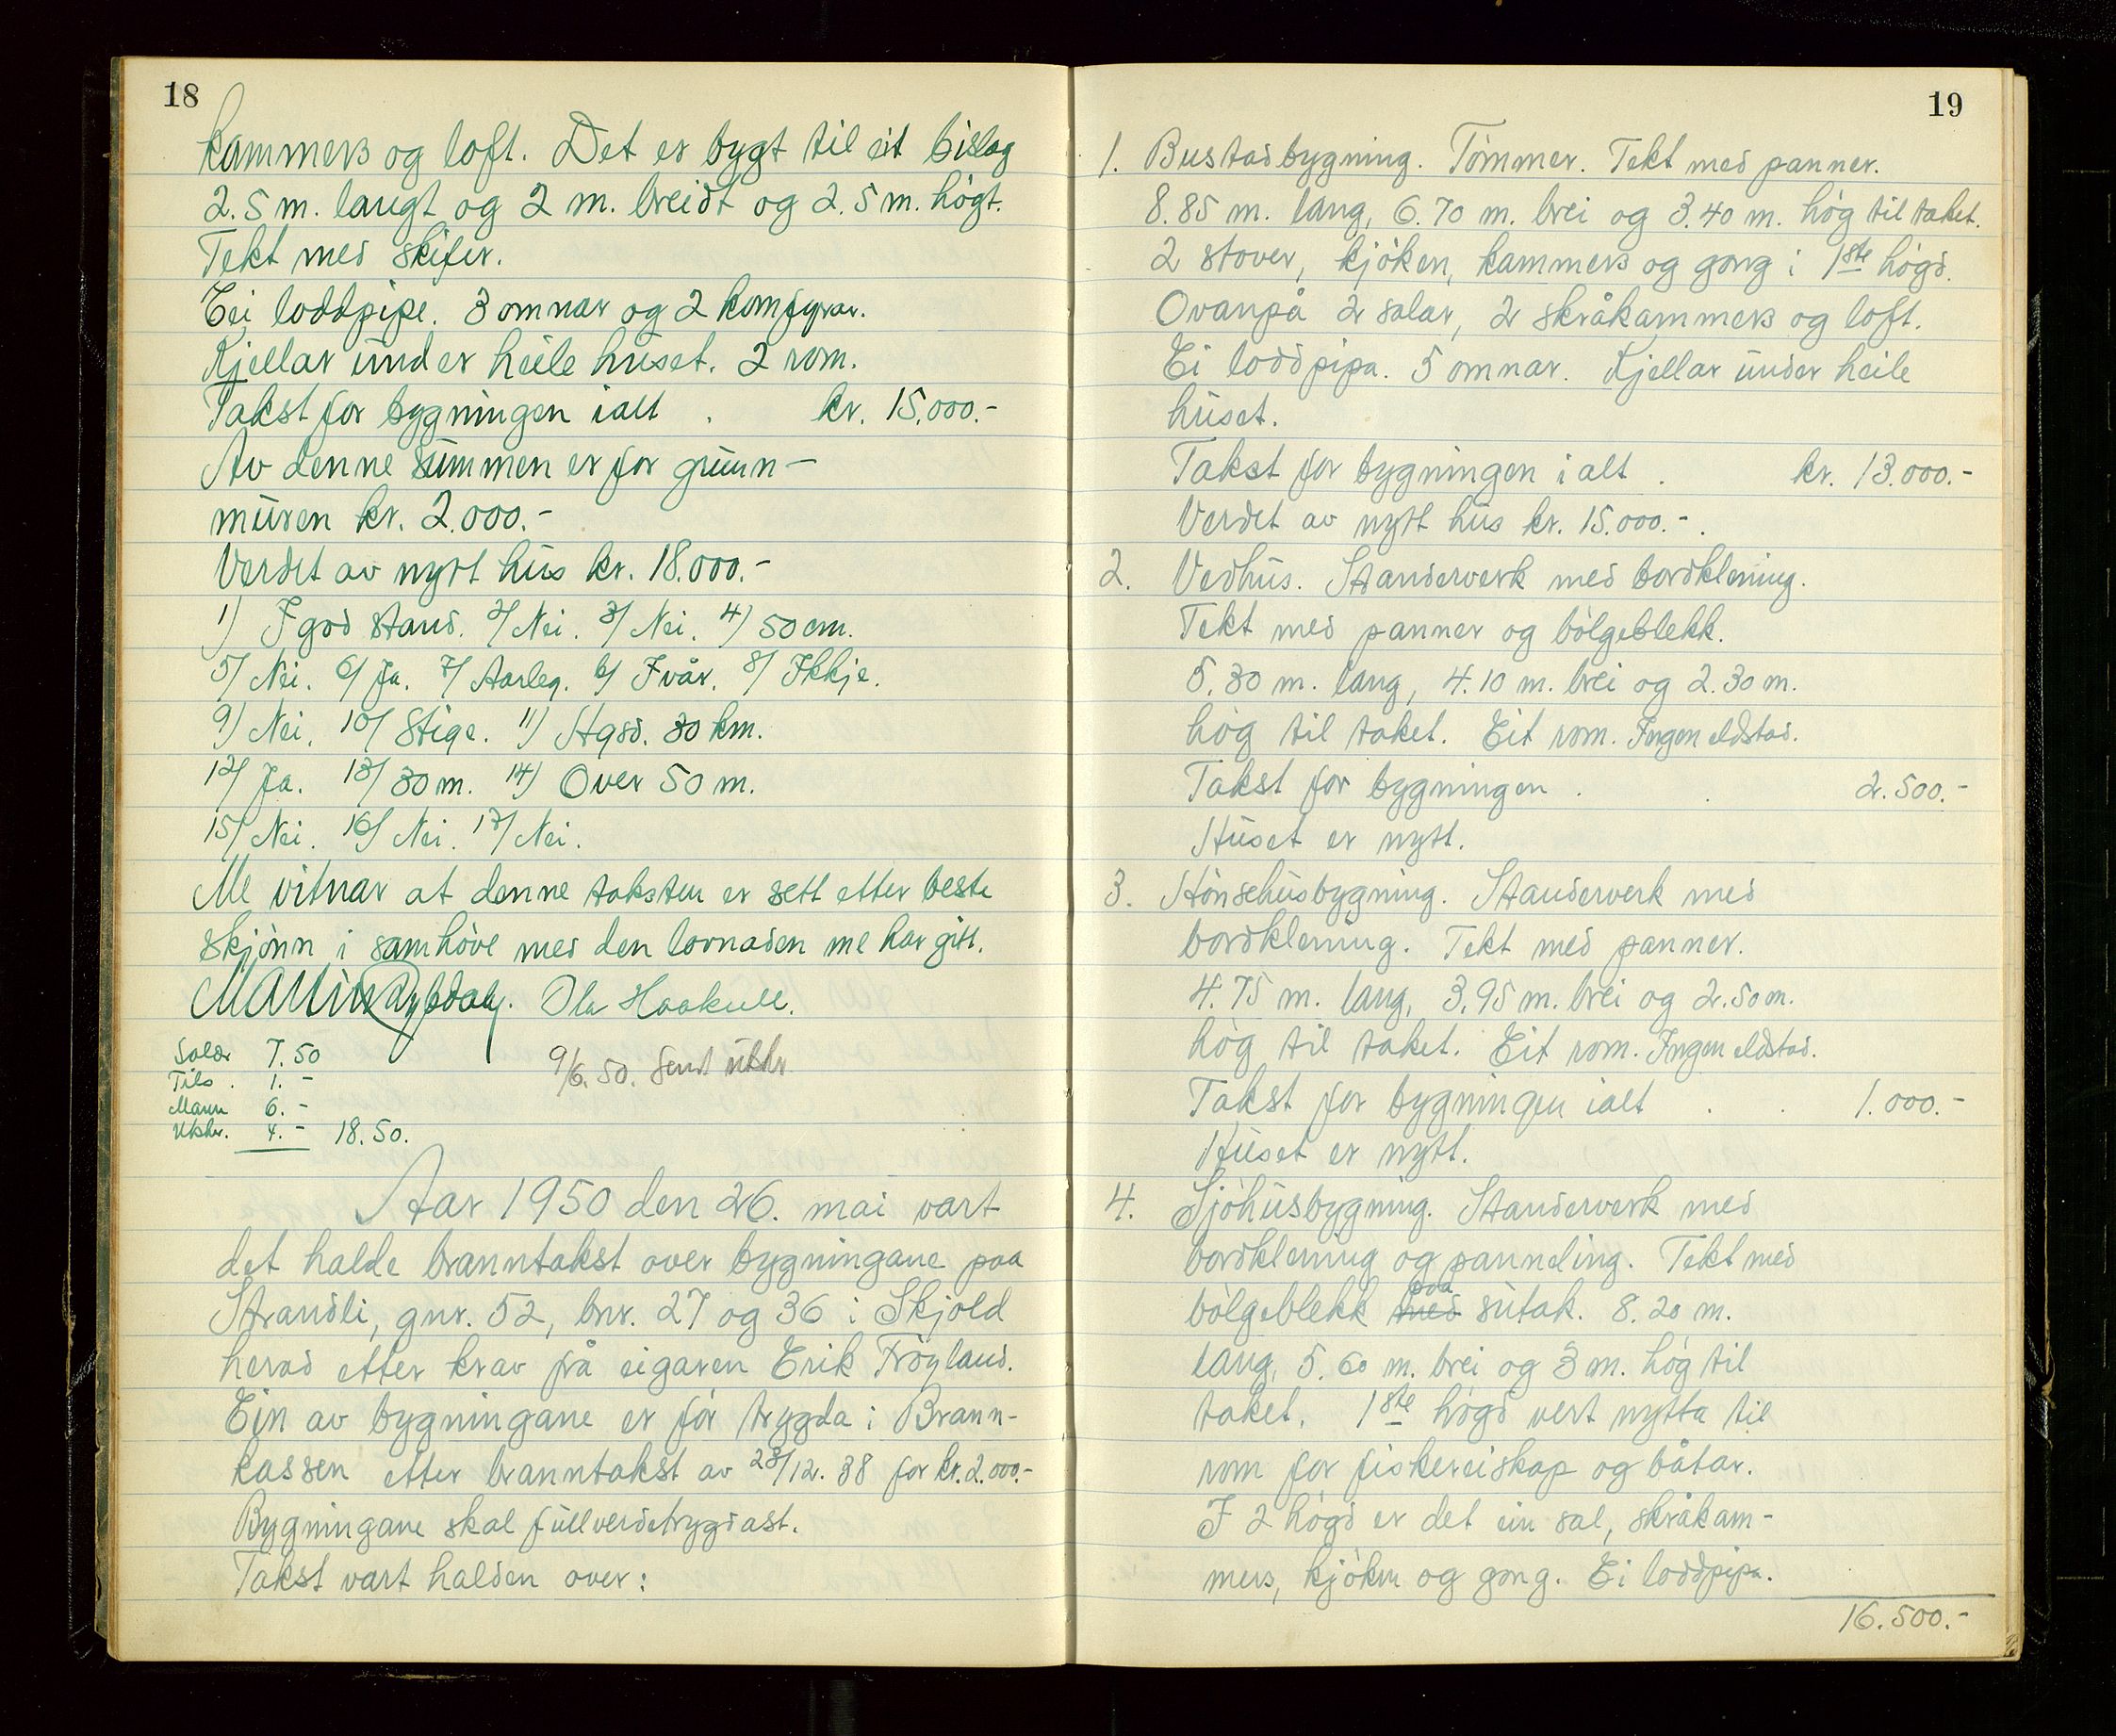 18
kammers og loft. Det er bygt til eit bislag
2.5 m. langt og 2 m. breidt og 2.5 m. högt.
Tekt med skifer.
Ei loddpipe. 3 omnar og 2 komfyrar.
Kjellar under heile huset. 2 rom.
Takst for bygningen ialt . kr. 15.000.-
Av denne summen er for grunn-
muren kr. 2.000.-
Verdet av nytt hus kr. 18.000.-
1) I god stand. 2/ Nei. 3/ Nei. 4) 50 cm.
5/ Nei. 6/ Ja. 7/ Aarleg. b/ I vår. 8/ Ikkje.
9) Nei. 10/ Stige. 11) Hgsd. 30 km.
12/ Ja. 13/ 30 m. 14) Over 50 m.
15/ Nei. 16/ Nei. 17/ Nei.
Me vitnar at denne taksten er sett etter beste
skjönn i samhöve med den lovnaden me har gitt.
Martin Ola Haakull.
7.50
Tils. 1.-
Mann 6.-
Utskr. 4.- 18.50.
9/6. 50. Sent utskr.
Aar 1950 den 26. mai vart
det halde branntakst over bygningane paa
Strandli, gnr. 52, bnr. 27 og 36 i Skjold
herad etter krav frå eigaren Erik Fröyland.
Ein av bygningane er för trygda i Brann-
kassen etter branntakst av 28/12. 38 for kr. 2.000.-
Bygningane skal fullverdetrygdast.
Takst vart halden over:
19
1. Bustadbygning. Tömmer. Tekt med panner.
8.85 m. lang, 6.70 m. brei og 3.40 m. hög til taket.
2 stover, kjöken, kammers og gang i 1ste högd.
Ovanpå 2 salar, 2 skråkammers og loft.
Ei loddpipa. 5 omnar. Kjellar under heile
huset.
Takst for bygningen i alt . kr. 13.000.-
Verdet av nytt hus kr. 15.000.-.
2. Vedhus. Standerverk med bordklening.
Tekt med panner og bölgeblekk.
5.30 m. lang, 4.10 m. brei og 2.30 m.
hög til taket. Eit rom. Ingen eldstad.
Takst for bygningen . . 2.500.-
Huset er nytt.
3. Hönsehusbygning. Standerverk med
bordklening. Tekt med panner.
4.75 m. lang, 3.95 m. brei og 2.50 m.
hög til taket. Eit rom. Ingen eldstad.
Takst for bygningen ialt . . 1.000.-
Huset er nytt.
4. Sjöhusbygning. Standerverk med
bordklening og panneling. Tekt med
bölgeblekk med paa sutak. 8.20 m.
lang, 5.60 m. brei og 3 m. hög til
taket. 1ste högd vert nytta til
rom for fiskereiskap og båtar.
I 2 högd er det ein sal, skråkam-
mers, kjöken og gang. Ei loddpipa.
16.500.-